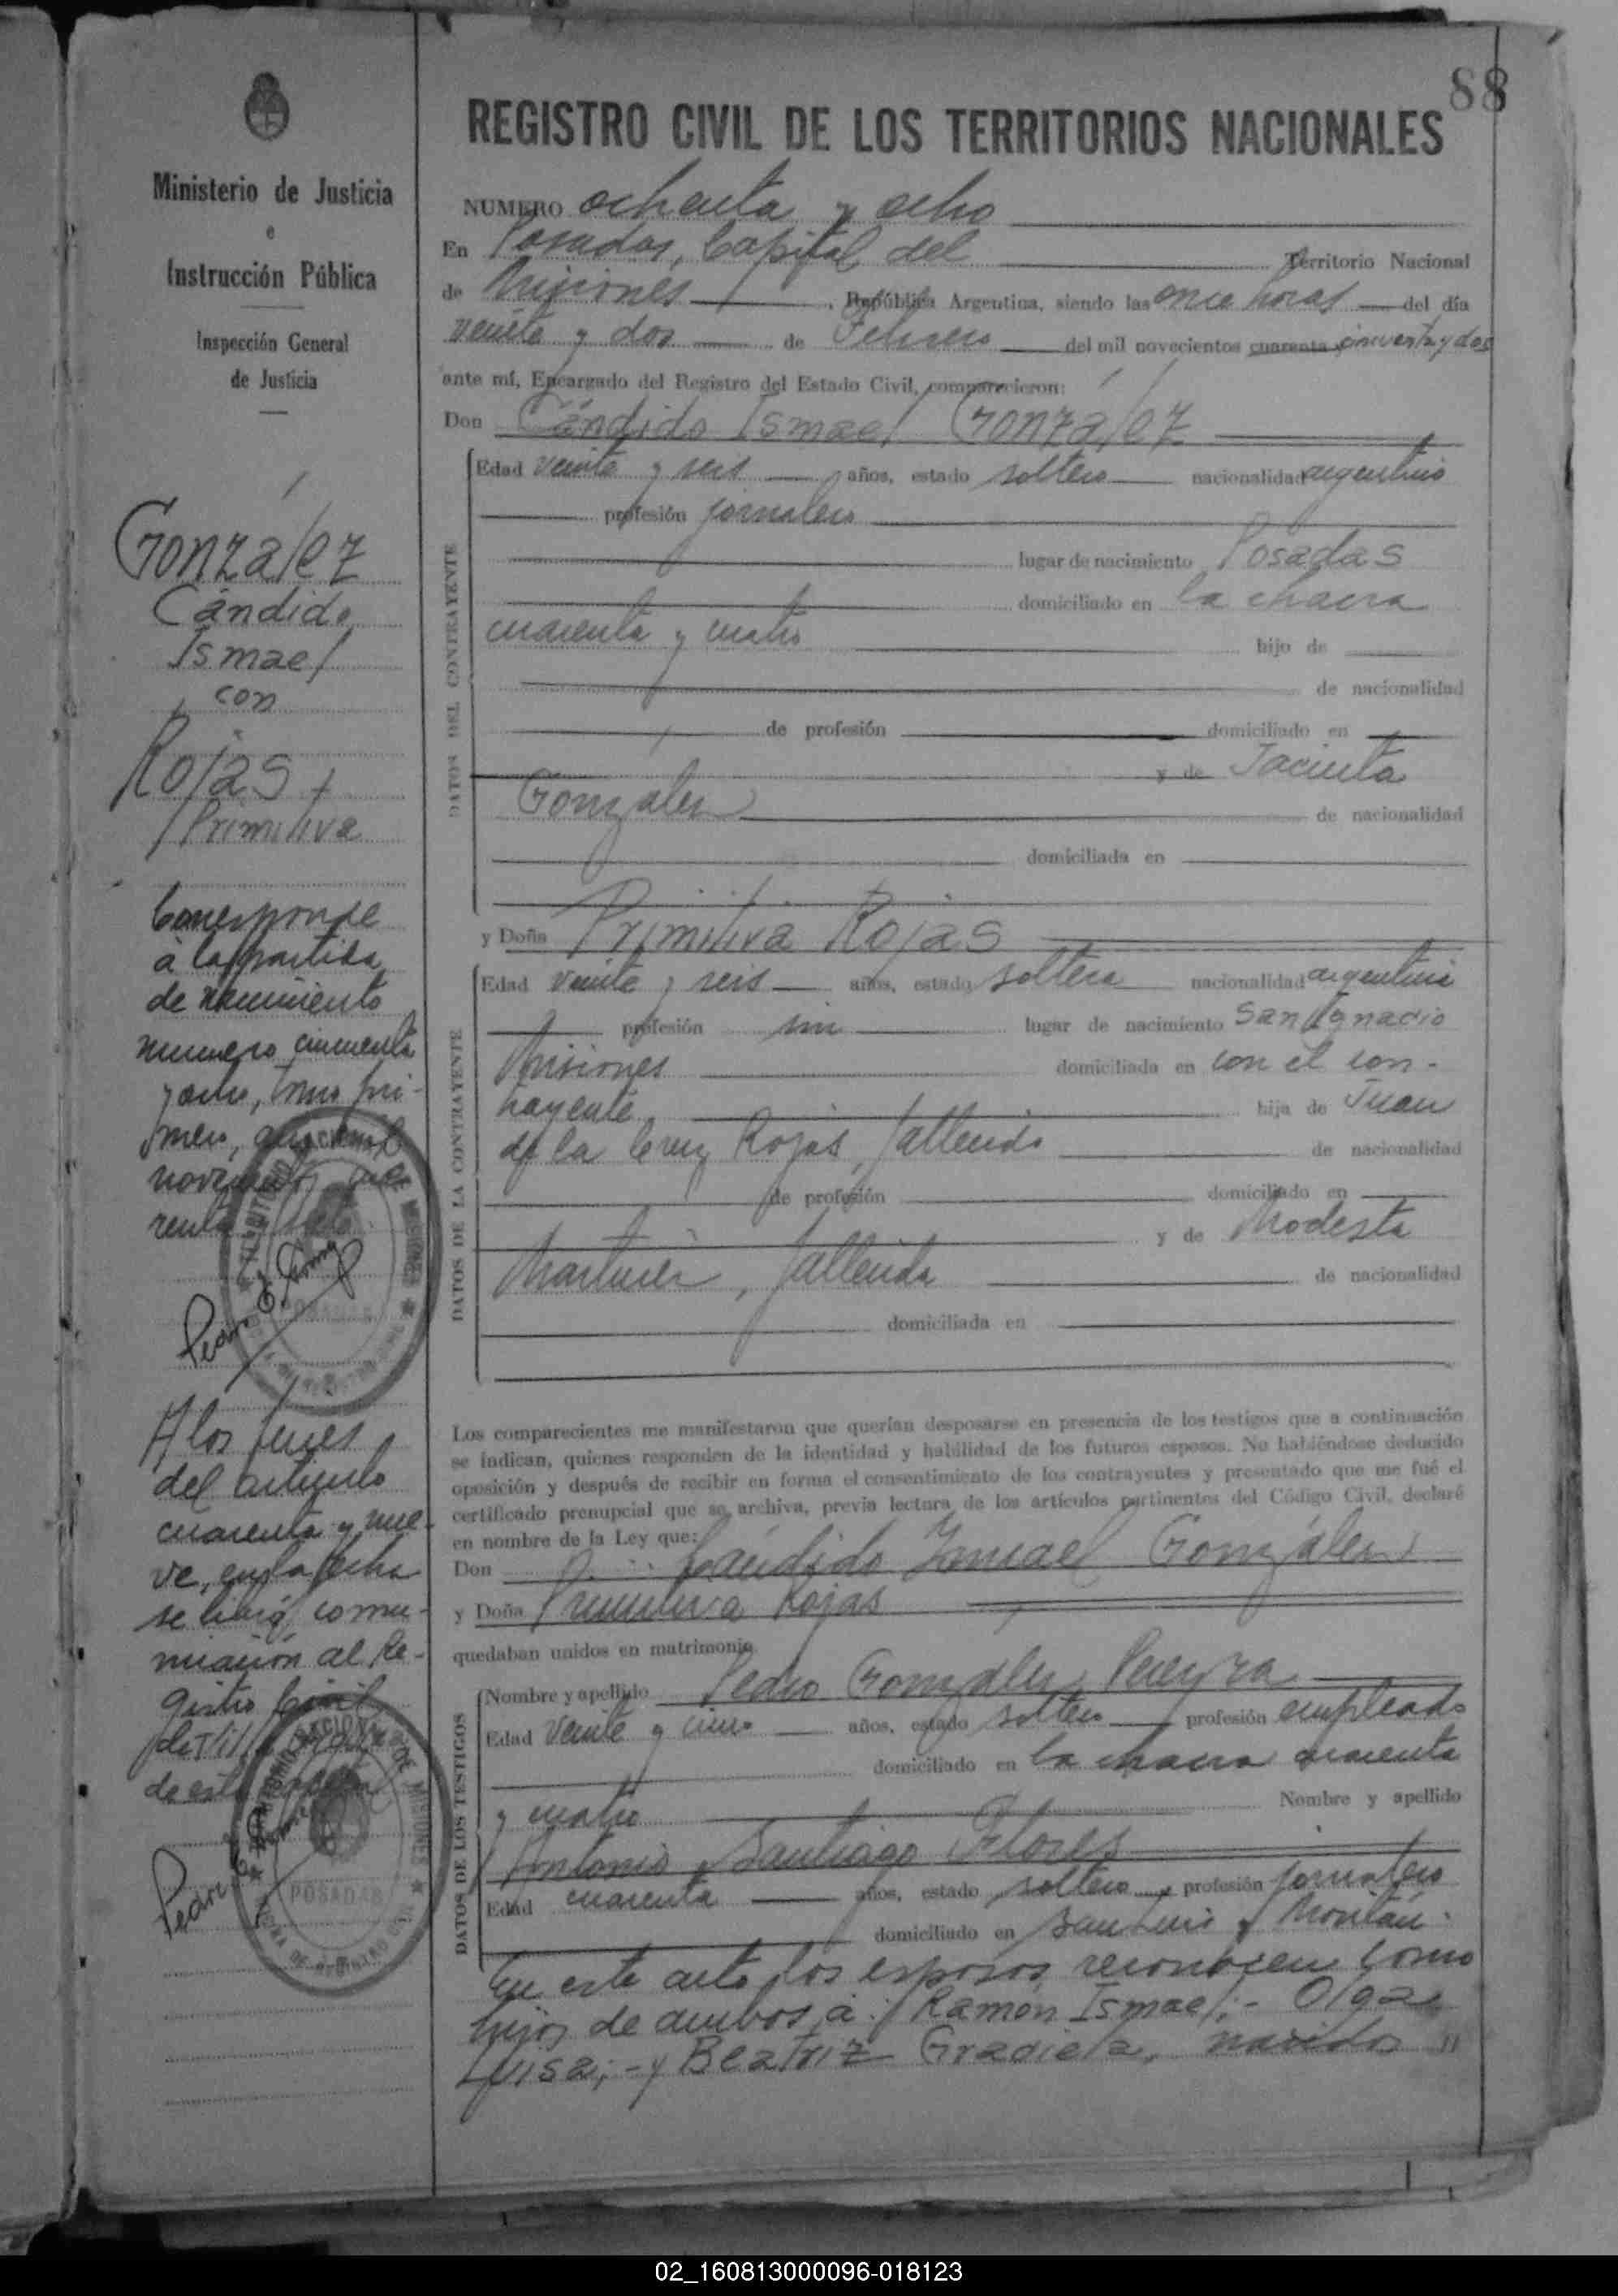 88
REGISTRO CIVIL DE LOS TERRITORIOS NACIONALES
Ministerio de Justicia
e
Instrucción Pública
Inspección General
de Justicia
González
Cándido
Ismael
con
Rojas
Primitiva
Corresponde
a la partida
de nacimiento
número cincuenta
y ocho, tomo pri-
mero,
A los fines
del artículo
cuarenta y nue-
ve, en la fecha
se libró comu-
nicación al Re-
gistro Civil
de esta
POSADAS
NUMERO ochenta y ocho
En Posadas, Capital del Territorio Nacional
de Misiones, República Argentina, siendo las once horas del día
veinte y dos de Febrero del mil novecientos cuarenta cincuenta y dos
ante mí, Encargado del Registro del Estado Civil, comparecieron:
Don Cándido Ismael González
DATOS DEL CONTRAYENTE
Edad veinte y seis años, estado soltero nacionalidad argentino
profesión jornalero
lugar de nacimiento Posadas
domiciliado en la chacra
cuarenta y cuatro hijo de
de nacionalidad
de profesión domiciliado en
y de Jacinta
González de nacionalidad
domiciliada en
y Doña Primitiva Rojas
DATOS DE LA CONTRAYENTE
Edad veinte y seis años, estado soltera nacionalidad argentina
profesión sin lugar de nacimiento San Ignacio
Misiones domiciliada en con el con-
trayente, hija de Juan
de la Cruz Rojas, fallecido de nacionalidad
de profesión domiciliado en
y de Modesta
Martínez, fallecida de nacionalidad
domiciliada en
Los comparecientes me manifestaron que querían desposarse en presencia de los testigos que a continuación
se indican, quienes responden de la identidad y habilidad de los futuros esposos. No habiéndose deducido
oposición y después de recibir en forma el consentimiento de los contrayentes y presentado que me fué el
certificado prenupcial que se archiva, previa lectura de los artículos pertinentes del Código Civil, declaré
en nombre de la Ley que:
Don Cándido Ismael González
y Doña Primitiva Rojas
quedaban unidos en matrimonio.
DATOS DE LOS TESTIGOS
Nombre y apellido Pedro González Pereyra
Edad veinte y cinco años, estado soltero profesión empleado
domiciliado en la chacra cuarenta
y cuatro Nombre y apellido
Antonio Santiago Flores
Edad cuarenta años, estado soltero profesión jornalero
domiciliado en San Luis y
En este acto los esposos reconocen como
hijos de ambos a: Ramón Ismael;- Olga
Luisa;- y Beatriz Graciela, nacidos
02_160813000096-018123